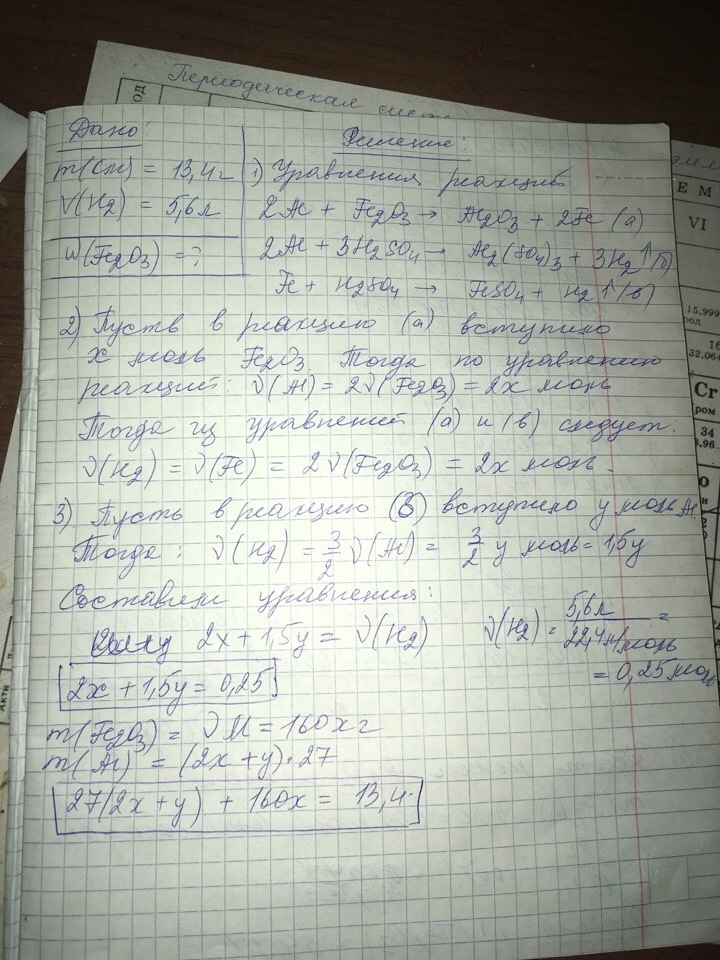 Периодическая сист
Дано:
Решение:
m(см) = 13,4 г
V(H2) = 5,6 л
w(Fe2O3) = ?
1) Уравнения реакций
2Al + Fe2O3 → Al2O3 + 2Fe (а)
2Al + 3H2SO4 → Al2(SO4)3 + 3H2↑ (б)
Fe + H2SO4 → FeSO4 + H2↑ (в)
2) Пусть в реакцию (а) вступило
x моль Fe2O3. Тогда по уравнению
реакций: ν(Al) = 2ν(Fe2O3) = 2x моль
Тогда из уравнений (а) и (в) следует:
ν(H2) = ν(Fe) = 2ν(Fe2O3) = 2x моль.
3) Пусть в реакцию (б) вступило y моль Al.
Тогда: ν(H2) = 3/2 ν(Al) = 3/2 y моль = 1,5y
Составим уравнения:
2x + 1,5y = ν(H2)
ν(H2) = 5,6л / 22,4л/моль =
= 0,25 моль
2x + 1,5y = 0,25
m(Fe2O3) = νM = 160x г
m(Al) = (2x + y)·27
27(2x + y) + 160x = 13,4
ОД
Е М
VI
15.999
род
16
32,06
Cr
ром
34